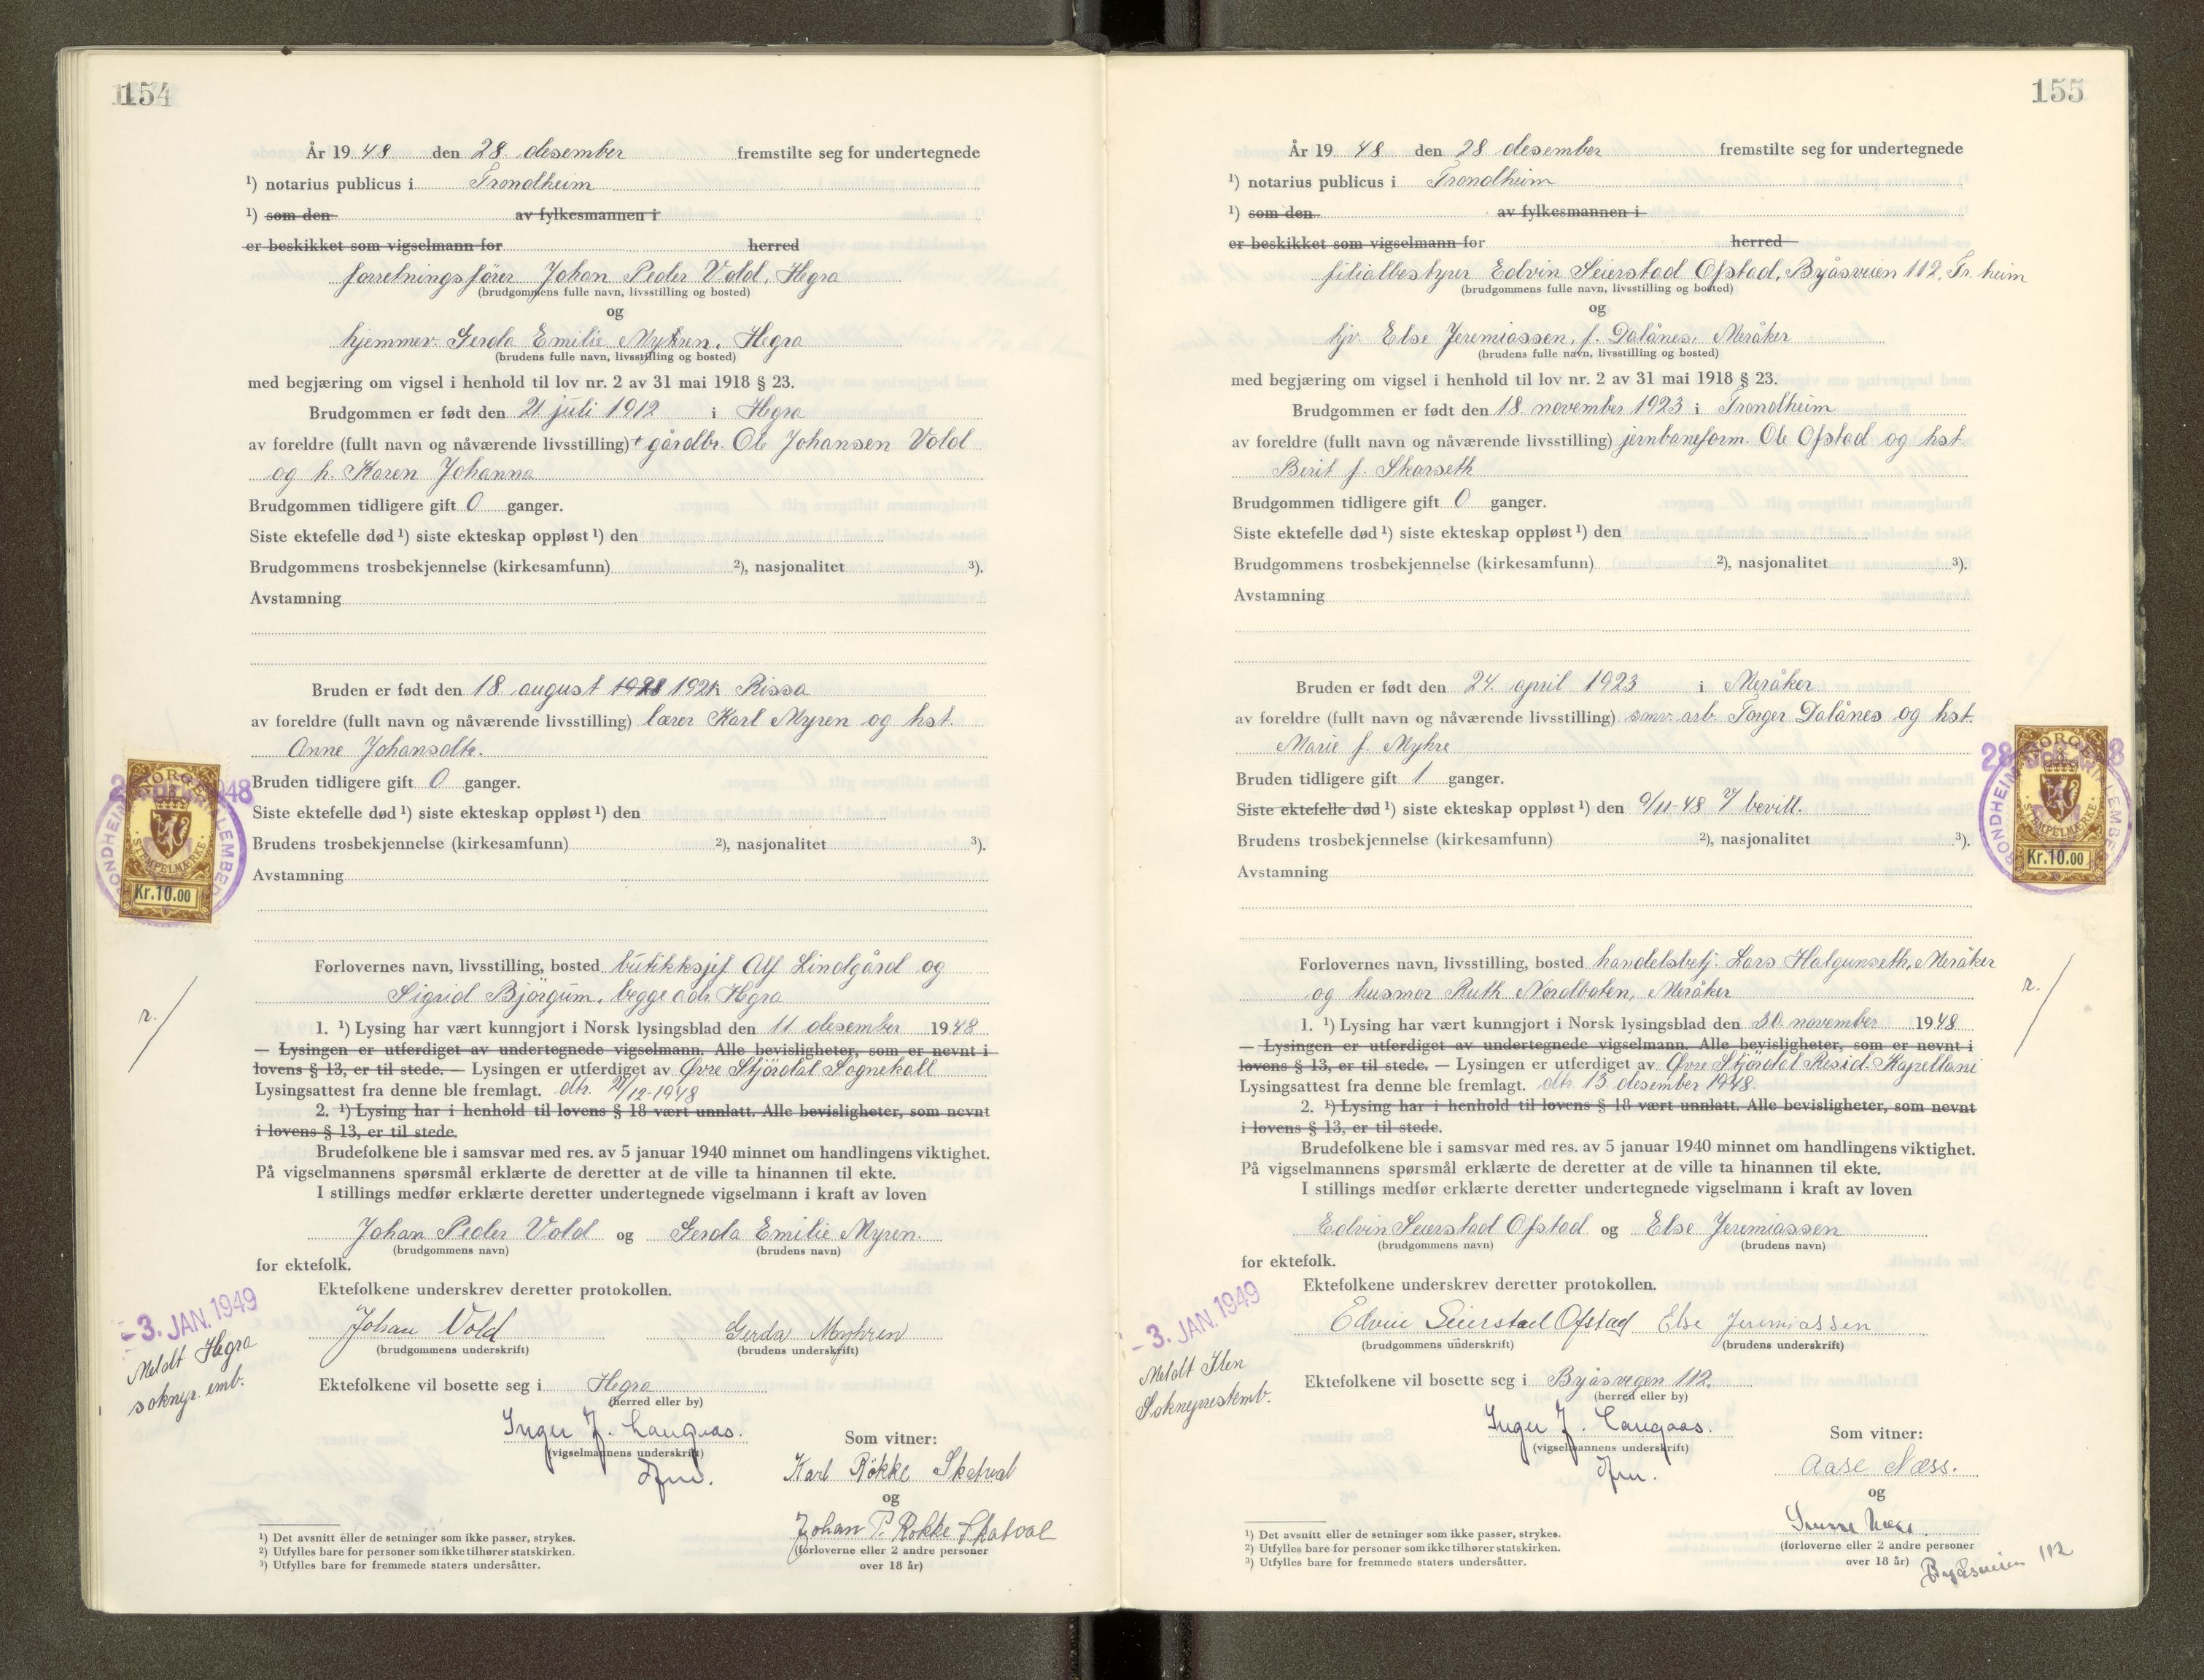 154
År 1948 den 28. desember fremstilte seg for undertegnede
¹) notarius publicus i Trondheim
¹) som den av fylkesmannen i
er beskikket som vigselmann for herred
forretningsfører Johan Peder Vold, Hegra
(brudgommens fulle navn, livsstilling og bosted)
og
hjemmev. Gerda Emilie Myhren, Hegra
(brudens fulle navn, livsstilling og bosted)
med begjæring om vigsel i henhold til lov nr. 2 av 31 mai 1918 § 23.
Brudgommen er født den 21 juli 1912 i Hegra
av foreldre (fullt navn og nåværende livsstilling) + gårdbr. Ole Johansen Vold
og h. Karen Johanna
Brudgommen tidligere gift 0 ganger.
Siste ektefelle død ¹) siste ekteskap oppløst ¹) den
Brudgommens trosbekjennelse (kirkesamfunn) ²), nasjonalitet ³).
Avstamning
Bruden er født den 18 august 1921 Rissa
av foreldre (fullt navn og nåværende livsstilling) lærer Karl Myren og hst.
Anne Johansdtr.
Bruden tidligere gift 0 ganger.
Siste ektefelle død ¹) siste ekteskap oppløst ¹) den
Brudens trosbekjennelse (kirkesamfunn) ²), nasjonalitet ³).
Avstamning
NORGE
STEMPELMÆRKE
Kr.10.00
Forlovernes navn, livsstilling, bosted butikksjef Alf Lindgård og
Sigrid Bjørgum, begge adr. Hegra
r.
1. ¹) Lysing har vært kunngjort i Norsk lysingsblad den 11 desember 1948
— Lysingen er utferdiget av undertegnede vigselmann. Alle bevisligheter, som er nevnt i
lovens § 13, er til stede. — Lysingen er utferdiget av Øvre Stjördal Sognekall
Lysingsattest fra denne ble fremlagt. dtr. 21/12-1948
2. ¹) Lysing har i henhold til lovens § 18 vært unnlatt. Alle bevisligheter, som nevnt
i lovens § 13, er til stede.
Brudefolkene ble i samsvar med res. av 5 januar 1940 minnet om handlingens viktighet.
På vigselmannens spørsmål erklærte de deretter at de ville ta hinannen til ekte.
I stillings medfør erklærte deretter undertegnede vigselmann i kraft av loven
Johan Peder Vold og Gerda Emilie Myren.
(brudgommens navn) (brudens navn)
for ektefolk.
Ektefolkene underskrev deretter protokollen.
-3. JAN. 1949
Meldt Hegra
soknepr. emb.
Johan Vold Gerda Myhren
(brudgommens underskrift) (brudens underskrift)
Ektefolkene vil bosette seg i Hegra
(herred eller by)
Inger J. Langaas.
(vigselmannens underskrift)
Som vitner:
Karl Røkke Skatval
og
Johan P. Røkke Skatval
(forloverne eller 2 andre personer
over 18 år)
¹) Det avsnitt eller de setninger som ikke passer, strykes.
²) Utfylles bare for personer som ikke tilhører statskirken.
³) Utfylles bare for fremmede staters undersåtter.
155
År 1948 den 28 desember fremstilte seg for undertegnede
¹) notarius publicus i Trondheim
¹) som den av fylkesmannen i
er beskikket som vigselmann for herred
filialbestyrer Edvin Seierstad Ofstad, Byåsveien 112, Tr.heim
(brudgommens fulle navn, livsstilling og bosted)
og
hjv. Else Jeremiassen, f. Dalånes, Meråker
(brudens fulle navn, livsstilling og bosted)
med begjæring om vigsel i henhold til lov nr. 2 av 31 mai 1918 § 23.
Brudgommen er født den 18. november 1923 i Trondheim
av foreldre (fullt navn og nåværende livsstilling) jernbaneform. Ole Ofstad og hst.
Berit f. Skarseth
Brudgommen tidligere gift 0 ganger.
Siste ektefelle død ¹) siste ekteskap oppløst ¹) den
Brudgommens trosbekjennelse (kirkesamfunn) ²), nasjonalitet ³).
Avstamning
Bruden er født den 24. april 1923 i Meråker
av foreldre (fullt navn og nåværende livsstilling) smv. arb. Torger Dalånes og hst.
Marie f. Myhre
Bruden tidligere gift 1 ganger.
Siste ektefelle død ¹) siste ekteskap oppløst ¹) den 9/11-48 bevill.
Brudens trosbekjennelse (kirkesamfunn) ²), nasjonalitet ³).
Avstamning
NORGE
STEMPELMÆRKE
Kr.10.00
Forlovernes navn, livsstilling, bosted handelsbetj. Lars Halgunseth, Meråker
og husmor Ruth Nordboten, Meråker
r.
1. ¹) Lysing har vært kunngjort i Norsk lysingsblad den 30. november 1948
— Lysingen er utferdiget av undertegnede vigselmann. Alle bevisligheter, som er nevnt i
lovens § 13, er til stede. — Lysingen er utferdiget av Øvre Stjördal Resid. Kapellani
Lysingsattest fra denne ble fremlagt. dtr. 13 desember 1948.
2. ¹) Lysing har i henhold til lovens § 18 vært unnlatt. Alle bevisligheter, som nevnt
i lovens § 13, er til stede.
Brudefolkene ble i samsvar med res. av 5 januar 1940 minnet om handlingens viktighet.
På vigselmannens spørsmål erklærte de deretter at de ville ta hinannen til ekte.
I stillings medfør erklærte deretter undertegnede vigselmann i kraft av loven
Edvin Seierstad Ofstad og Else Jeremiassen
(brudgommens navn) (brudens navn)
for ektefolk.
Ektefolkene underskrev deretter protokollen.
-3. JAN. 1949
Meldt Ilen
Sokneprestemb.
Edvin Seierstad Ofstad Else Jeremiassen
(brudgommens underskrift) (brudens underskrift)
Ektefolkene vil bosette seg i Byåsvegen 112.
(herred eller by)
Inger J. Langaas.
(vigselmannens underskrift)
Som vitner:
Aase Næss.
og
(forloverne eller 2 andre personer
over 18 år)
Byåsveien 112
¹) Det avsnitt eller de setninger som ikke passer, strykes.
²) Utfylles bare for personer som ikke tilhører statskirken.
³) Utfylles bare for fremmede staters undersåtter.